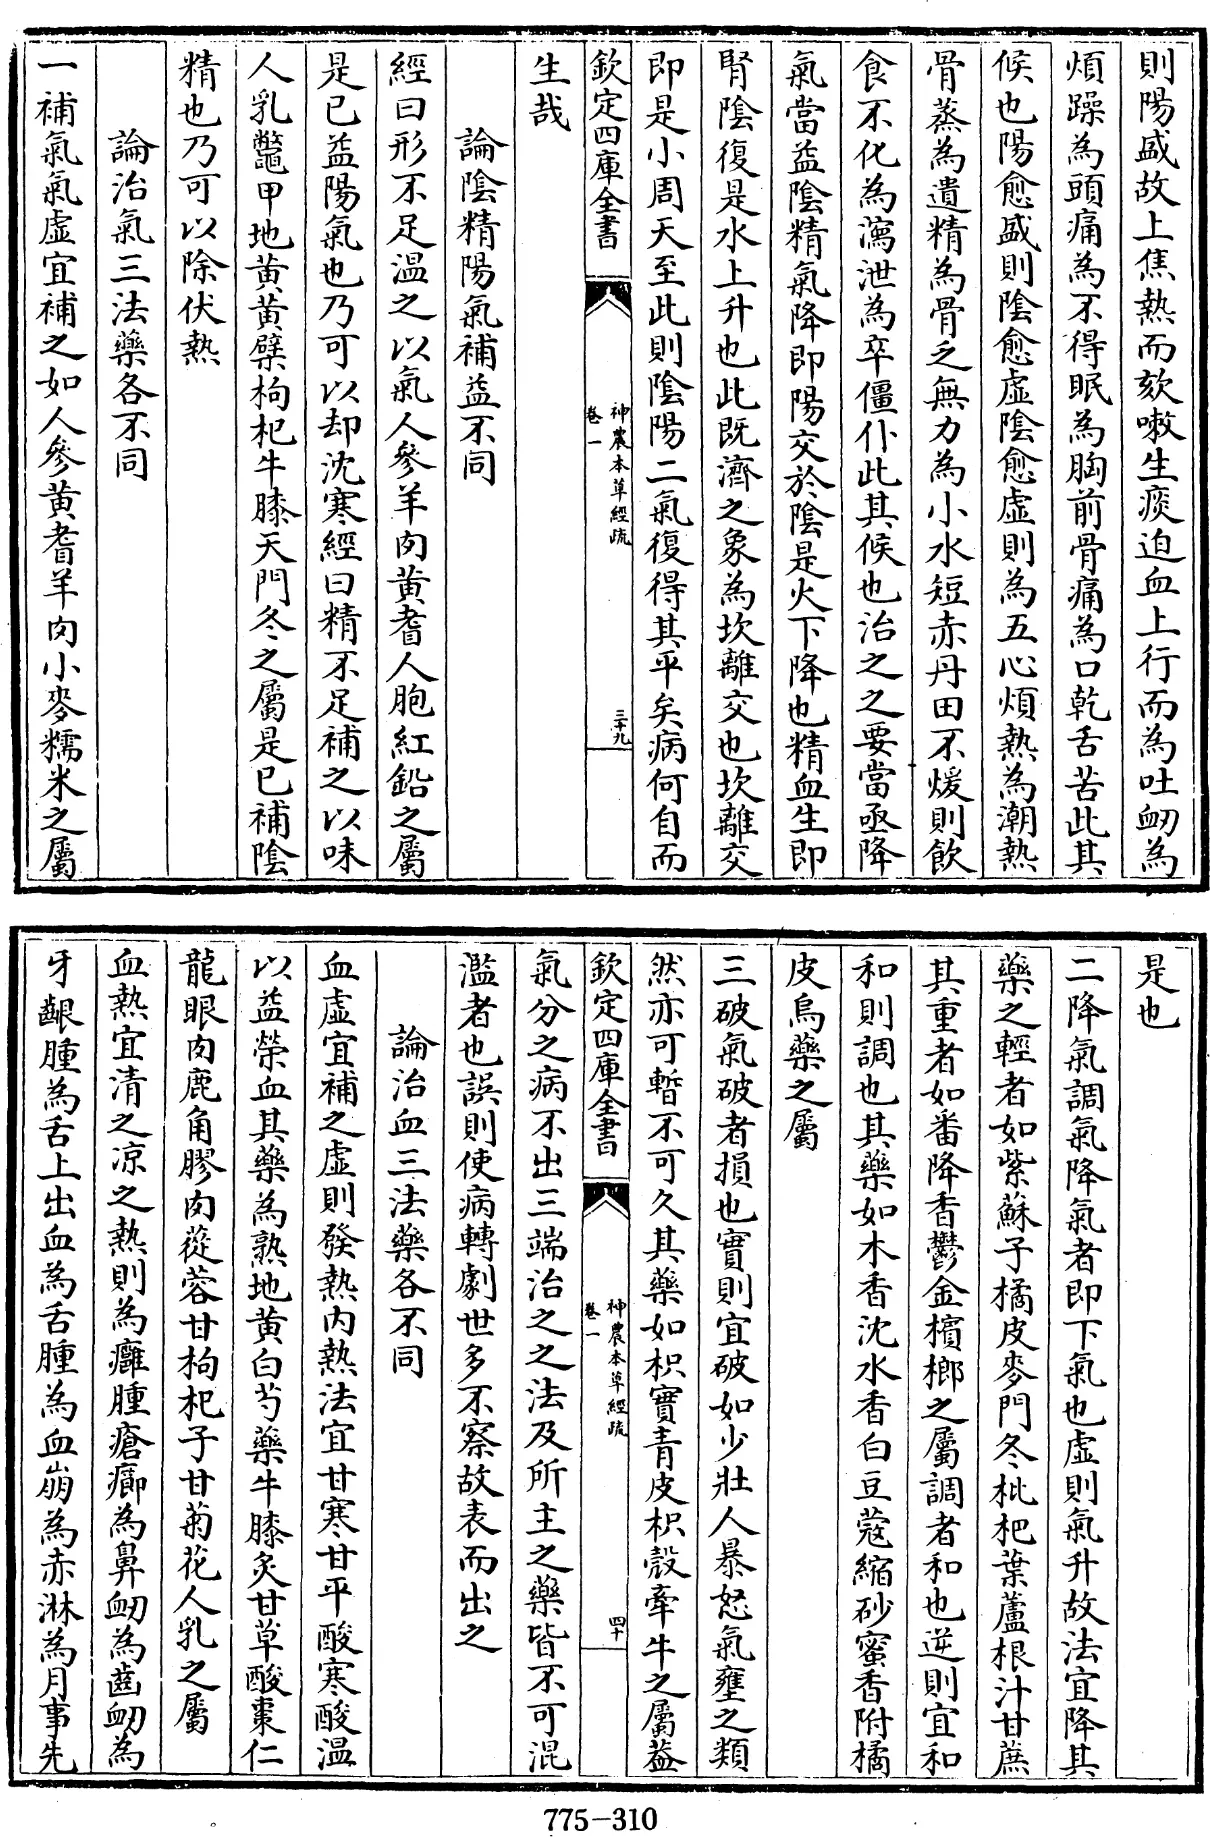 則陽盛故上焦熱而欬嗽生痰迫血上行而為吐衂為
煩躁為頭痛為不得眠為胸前骨痛為口乾舌苦此其
候也陽愈盛則陰愈虛陰愈虛則為五心煩熱為潮熱
骨蒸為遺精為骨乏無力為小水短赤丹田不煖則飲
食不化為瀉泄為卒僵仆此其候也治之之要當亟降
氣當益陰精氣降即陽交於陰是火下降也精血生即
腎陰復是水上升也此既濟之象為坎離交也坎離交
即是小周天至此則陰陽二氣復得其平矣病何自而
欽定四庫全書
神農本草經疏
卷一
三十九
生哉
論陰精陽氣補益不同
經曰形不足溫之以氣人參羊肉黃耆人胞紅鉛之屬
是已益陽氣也乃可以却沈寒經曰精不足補之以味
人乳鼈甲地黃黃檗枸杞牛膝天門冬之屬是已補陰
精也乃可以除伏熱
論治氣三法藥各不同
一補氣氣虛宜補之如人參黃耆羊肉小麥糯米之屬
是也
二降氣調氣降氣者即下氣也虛則氣升故法宜降其
藥之輕者如紫蘇子橘皮麥門冬枇杷葉蘆根汁甘蔗
其重者如番降香鬱金檳榔之屬調者和也逆則宜和
和則調也其藥如木香沈水香白豆蔻縮砂蜜香附橘
皮烏藥之屬
三破氣破者損也實則宜破如少壯人暴怒氣壅之類
然亦可暫不可久其藥如枳實青皮枳殼牽牛之屬葢
欽定四庫全書
神農本草經疏
卷一
四十
氣分之病不出三端治之之法及所主之藥皆不可混
濫者也誤則使病轉劇世多不察故表而出之
論治血三法藥各不同
血虛宜補之虛則發熱內熱法宜甘寒甘平酸寒酸溫
以益榮血其藥為熟地黃白芍藥牛膝炙甘草酸棗仁
龍眼肉鹿角膠肉蓯蓉甘枸杞子甘菊花人乳之屬
血熱宜清之凉之熱則為癰腫瘡癤為鼻衂為齒衂為
牙齦腫為舌上出血為舌腫為血崩為赤淋為月事先
775-310